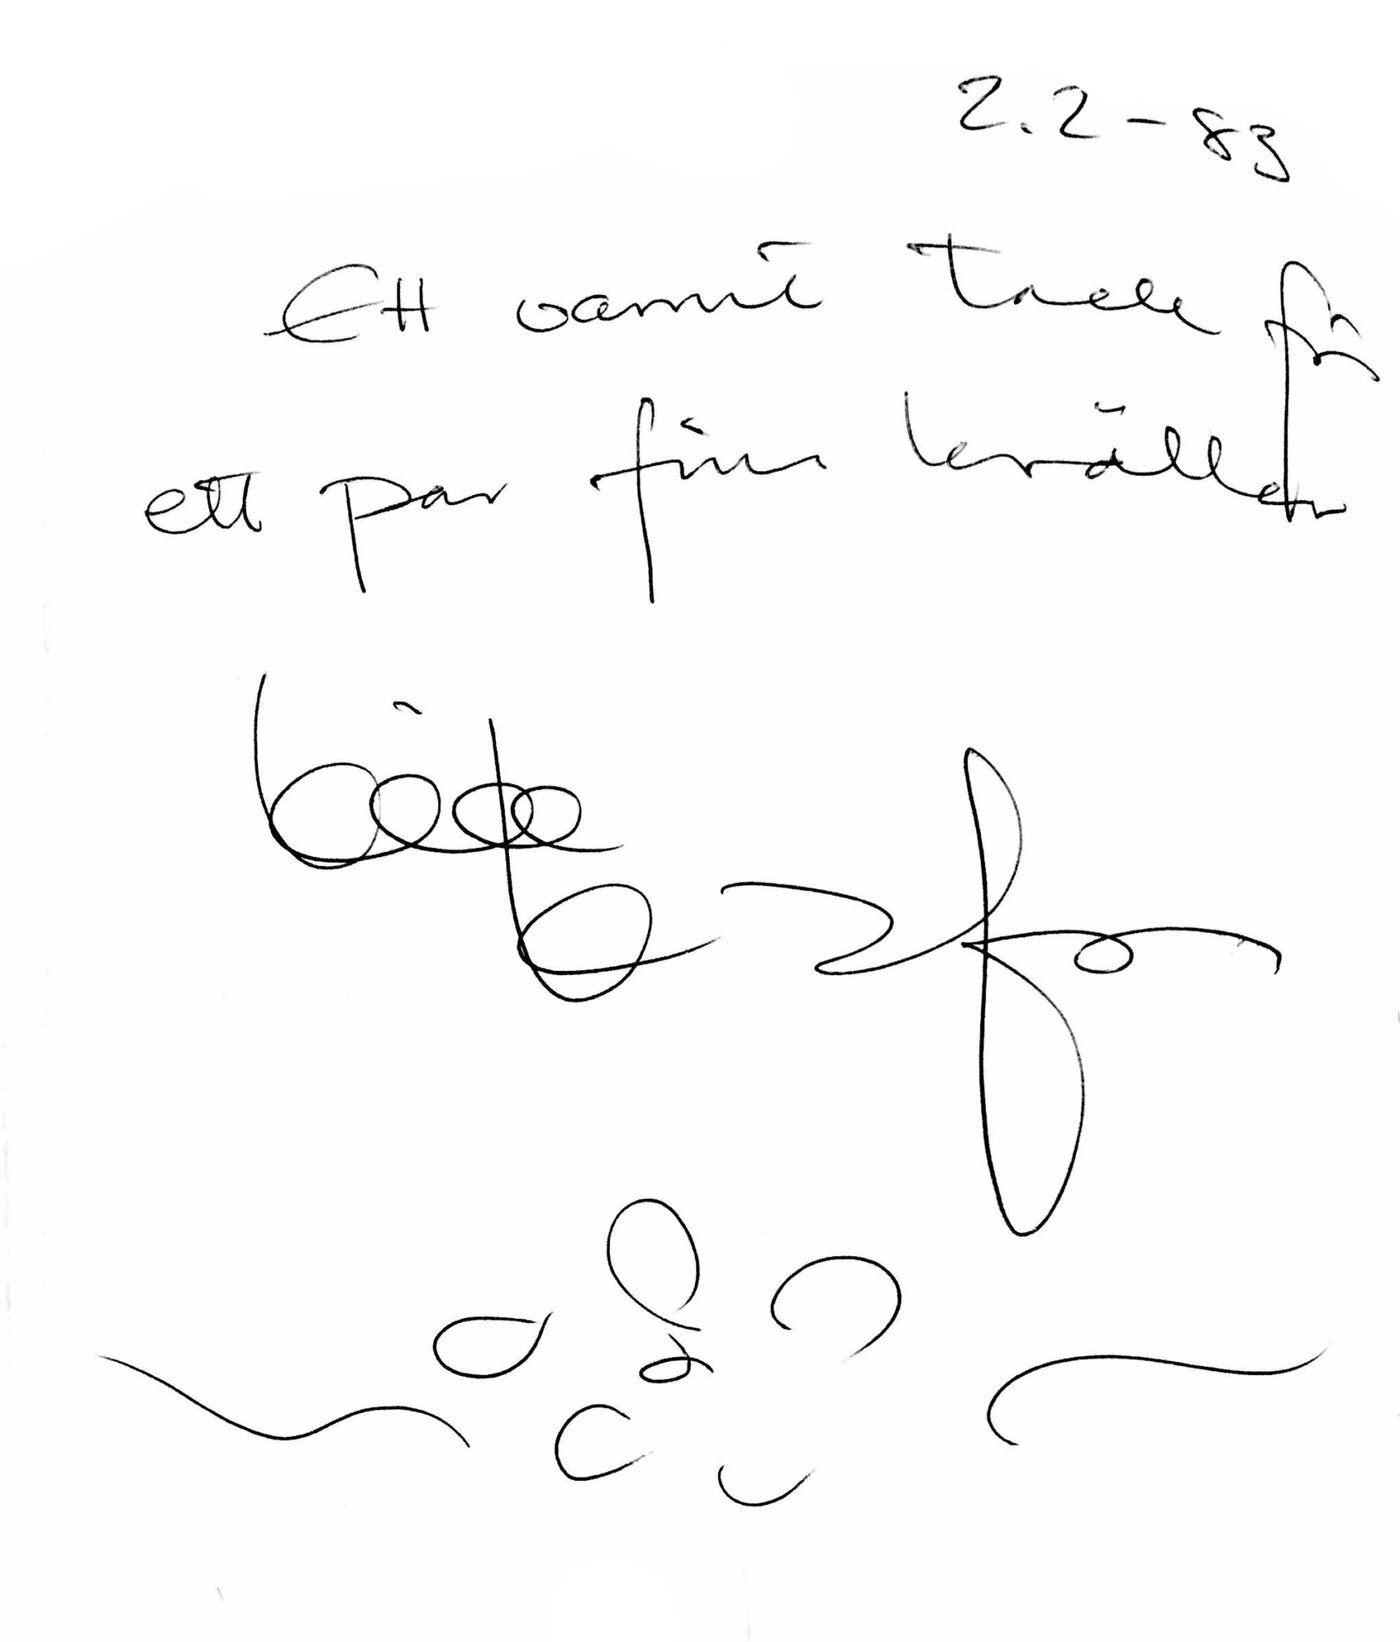 2.2-83
Ett varmt tack för
ett par fina kvällar